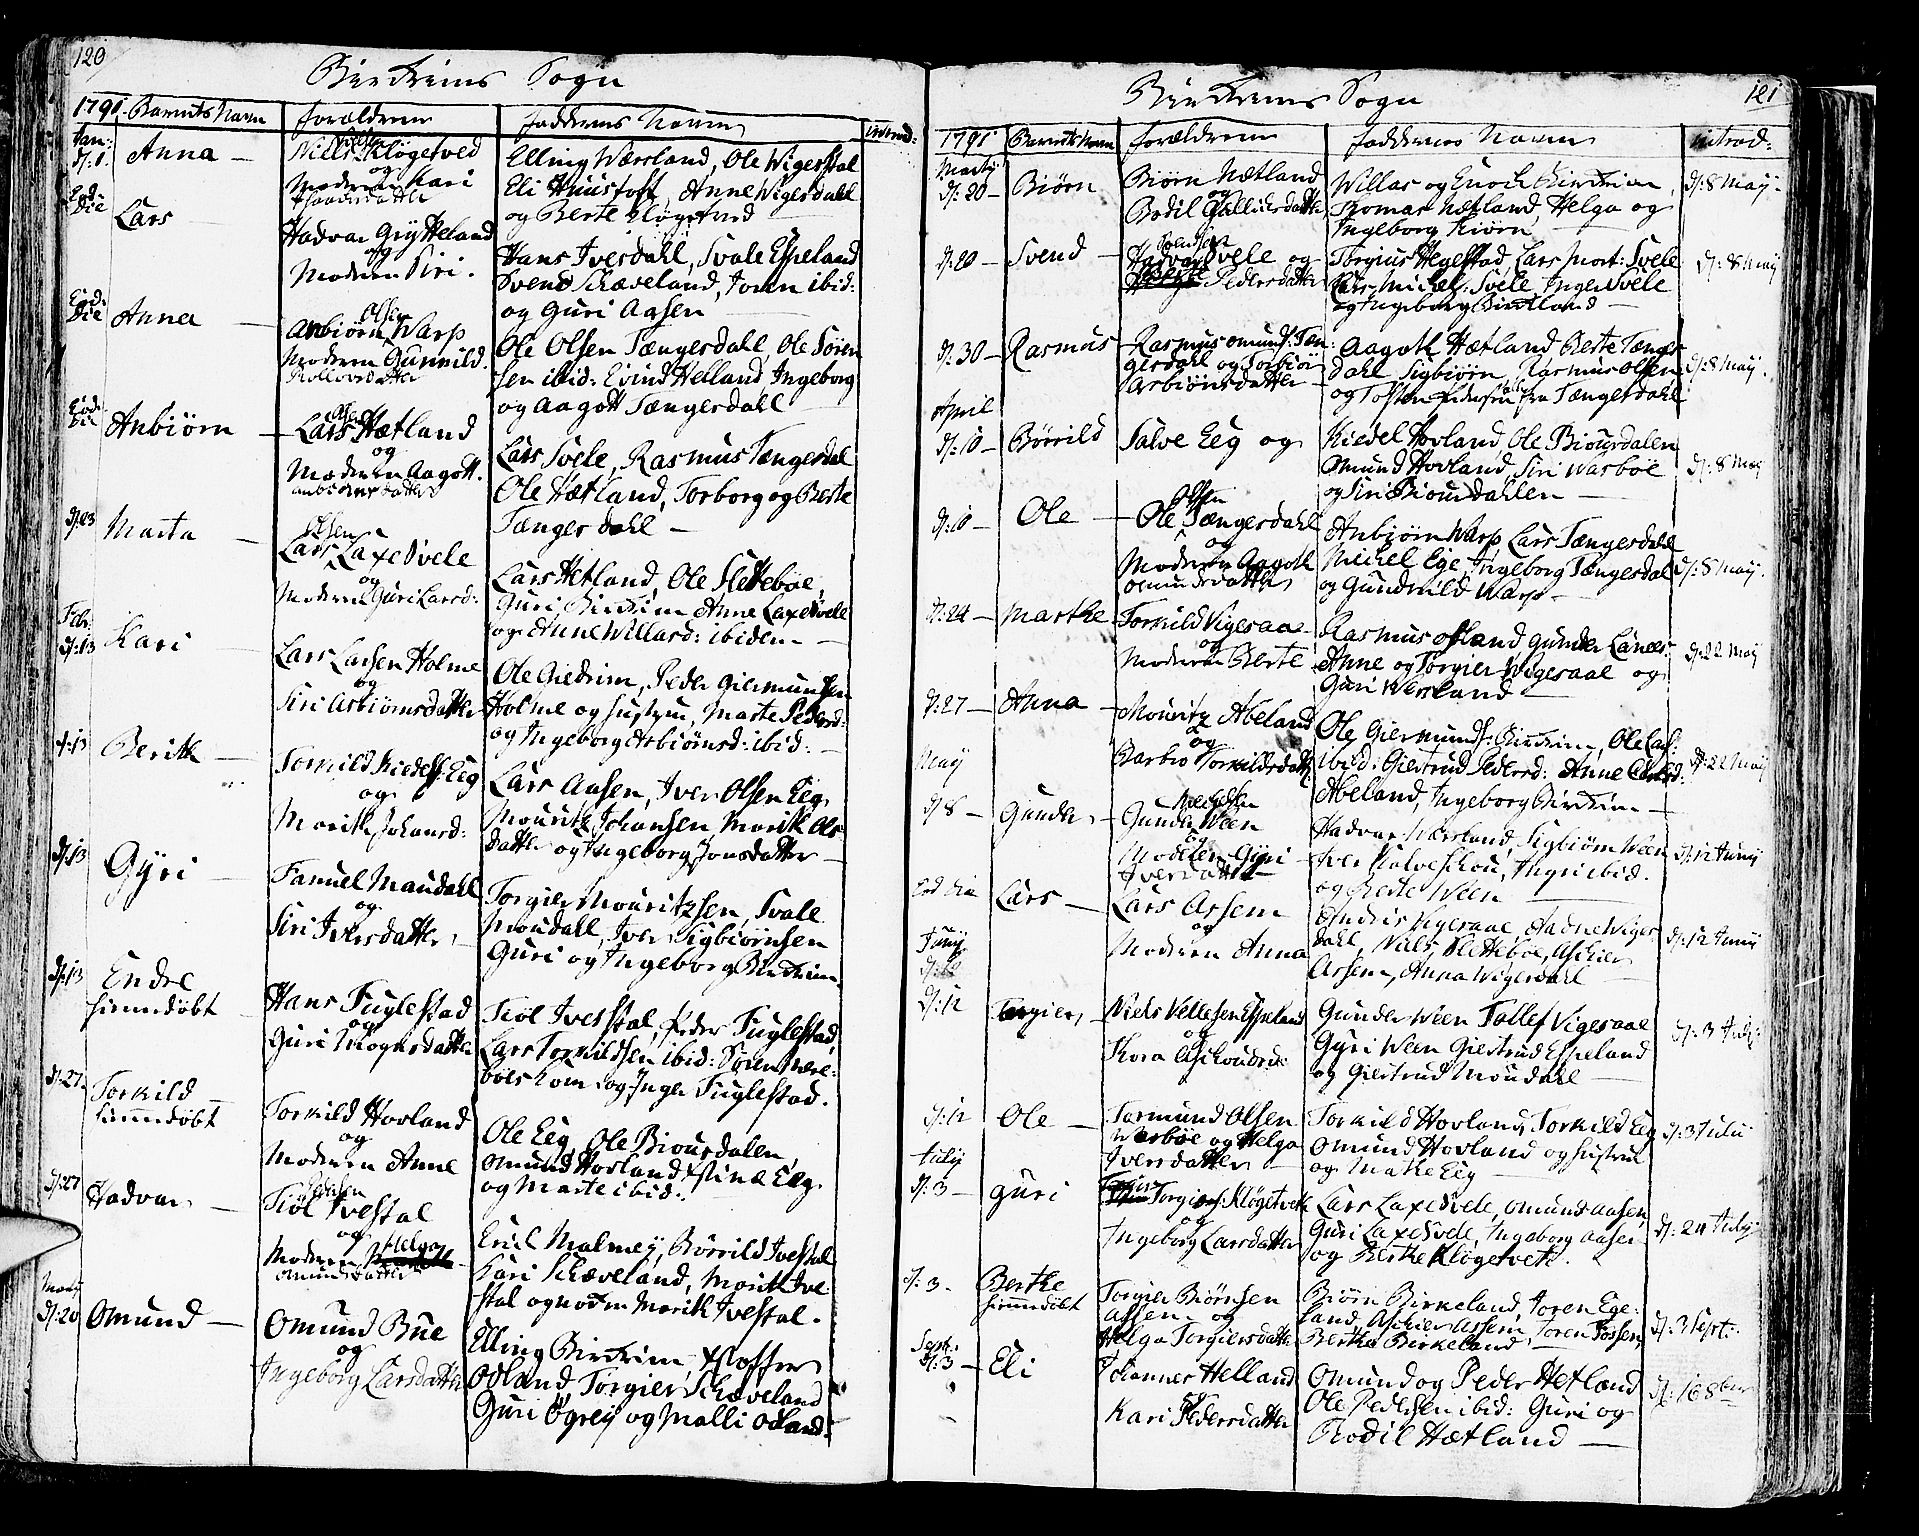 120
Birckrims Sogn
1791. Barnets Navn forældrene faddernes Navne introd:
Jan:
d: 1. Anna — Niels Kløgetved
og
Moderen Kari
Elling Wersland, Ole Wigesdal
Eli Huustoft, Anne Wigesdahl
og Berte Kløgetved
Eod:
Die Lars Hadvar Gry Heland
og
Moderen Siri.
Hans Iversdahl, Svale Espeland
Svend Schæveland, Joren ibid:
og Guri Aasen
Eod:
Die Anna — Olsen
Anbiørn Warp
Moderen Gunnild.
Rollevsdatter
Ole Olsen Tængesdahl, Ole Sören
sen ibid: Eivind Helland, Ingeborg
og Aagott Tængesdahl
Eod:
Die Anbiørn — Olsen
Lars Hætland
og
Moderen Aagott.
Lars Svele, Rasmus Tængesdal
Ole Hætland, Torborg og Berte
Tængesdahl —
d: 23 Marta — Olsen
Lars Laxesvele
og
Moderen Guri Larsd:
Lars Hetland, Ole Slettebøe,
Guri Birckrim Anne Laxesvele
og Anne Willasd: ibidem —
Febr:
d: 13 Kari Lars Larsen Holme
og
Siri Asbiørnsdatter
Ole Giedrim, Peder Giermundsen
Holme og hustrue, Marte Pedersd:
og Ingeborg Asbiørnsd: ibid: —
d: 13 Berith — Torkild Kiedels: Eeg
og
Marith Johansd:
Lars Aasen, Iver Olsen Eeg
Mouritz Johansen, Marith Ols
datter og Ingeborg Jonsdatter —
d: 13 Gyri — Samuel Maudahl
og
Siri Iversdatter
Torgier Mouritzsen, Svale
Moudahl, Iver Sigbiørnsen
Guri og Ingeborg Birckrim
d: 13 Endre
hiemdøbt Hans Fuglestad
og
Guri Mognsdatter
Tiøl Ivestal, Peder Fuglestad
Lars Torkildsen ibid: Sören
og Inger Fuglestad.
d: 27. Torkild
hiemdøbt Torkild Hovland
og
Moderen Anne
Ole Eeg, Ole Biousdalen,
Omund Hovland Stine Eeg
og Marte ibid:
d: 27 Hadvar — Tiøl Ivestal
og
Moderen Helga
Omundsdatter
Erich Malmey, Børrild Ivestal
Kari Schæveland, Marith Ive
stal og Marith Ivestal.
Martj
d: 20 Omund — Omund Bue
og
Ingeborg Larsdatter
Elling Birckrim,
Odland, Torgier Schæveland
Guri Ögrey og Malli Odland:
121
Birckrims Sogn
1791 Barnets Navn forældrene faddernes Navne introd:
Martj
d: 20 — Biørn Biørn Nætland
og
Bodil Gullichsdatter
Willas og Enoch Birckrim,
Thomas Nætland, Helga og
Ingeborg Kiörn
d: 8 May.
d: 20 — Svend — Svendsen
Hadvar Svele og
Berte Pedersdatter
Torgius Hegestad, Lars Mort: Svele
Lars Michel: Svele, Inger Svele
og Ingeborg Birckland —
d: 8 May
d: 30 — Rasmus — Rasmus Omunds: Tæn:
gesdahl og Torbiør
Asbiørnsdatter —
Aagoth Hætland Berte Tænges
dahl Sigbiørn, Rasmus Olsen
og Tosten Pedersen fra Tængesdahl
d: 8 May.
April
d: 10 — Börrild Salve Eeg og
Kiedel Hovland, Ole Biousdalen
Omund Hovland, Siri Warbøe
og Siri Biousdahlen —
d: 8 May
d: 10 — Ole — Olsen
Ole Tængesdahl
og
Moderen Aagoth
Omundsdatter
Anbiørn Warp Lars Tængesdahl
Michel Ege, Ingeborg Tængesdal
og Gundvild Warp —
d: 8 May.
d: 24 — Marthe Torkild Vigesaae
og
Moderen Berte
Rasmus Ofsland, Gunder
Anne og Torgier Wigesaae og
Guri Wersland —
d: 22 May
d: 27 — Anna — Mouritz Abeland
og
Barbro Torkildsdatter
Ole Giermunds: Birckrim, Ole Lars:
ibid: Giertrud Pedersd: Anne
Abeland, Ingeborg Birckrim —
d: 22 May
May
d: 8 — Gunder — Michelsen
Gunder Ween
og
Moderen Gyri
Iversdatter —
Hadvar Wersland, Sigbiørn Ween
Iver, Ingri ibid.
og Berte Ween
d: 12 Junij
Eod Die Lars — Lars Assem
og
Moderen Anna
Endris Vigesaae, Aadne Wiges
dahl, Niels Slettebøe, Aschier
Assem, Anna Wigesdahl —
d: 12 Junij
Junij
d: 12
d: 12 Torgier — Niels Vellesen Espeland
og
Thora
Gunder Ween Tollef Vigesaae
Gyri Ween Giertrud Espeland
og Giertrud Moudahl —
d: 3 July
d: 12 Ole — Tormund Olsen
Warbøe og Helga
Iversdatter —
Torkild Hovland, Torkild Eeg
Omund Hovland og hustrue
og Marthe Eeg —
d: 3 July
July
d: 3 — Guri Torgiers: Kløgetveth
og
Ingeborg Larsdatter
Lars Laxesvele, Omund Aasen
Guri Laxesvele, Ingeborg Aasen
og Berthe Kløgetveth.
d: 24 July
d: 3. Berthe
hiemdöbt Torgier Biørnsen
Assem og
Helga Torgiersdatter
Biørn Birkeland, Joren Ege:
land, Aschier Assem, Joren Fossen,
Berthe Birkeland —
d: 3 Sept:
Sept:
d: 3 — Eli Johannes Helland
og
Kari Pedersdatter
Omund og Peder Hetland
Ole Pedersen ibid: Guri og
Bodil Hætland —
d: 16 8ber